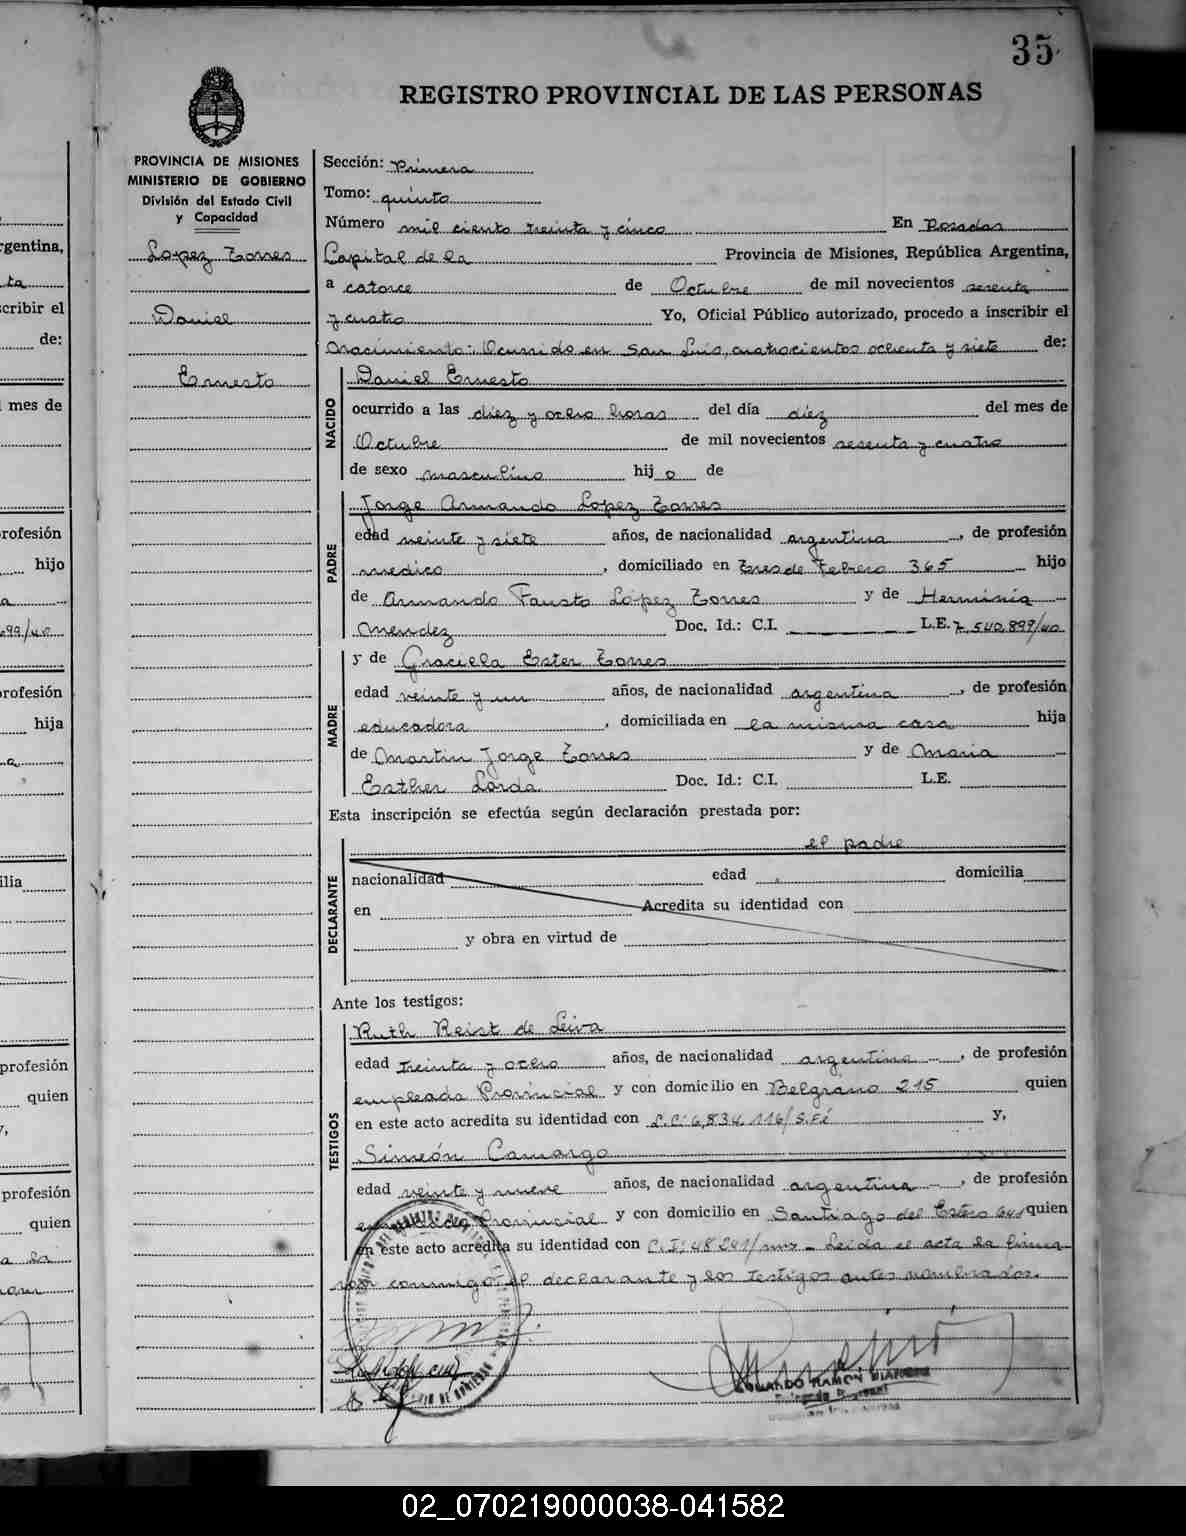 35
REGISTRO PROVINCIAL DE LAS PERSONAS
PROVINCIA DE MISIONES
MINISTERIO DE GOBIERNO
División del Estado Civil
y Capacidad
Lopez Torres
Daniel
Ernesto
Sección: Primera
Tomo: quinto
Número mil ciento treinta y cinco En Posadas
Capital de la Provincia de Misiones, República Argentina,
a catorce de Octubre de mil novecientos sesenta
y cuatro Yo, Oficial Público autorizado, procedo a inscribir el
Nacimiento: Ocurrido en San Luis, cuatrocientos ochenta y siete de:
NACIDO
Daniel Ernesto
ocurrido a las diez y ocho horas del día diez del mes de
Octubre de mil novecientos sesenta y cuatro
de sexo masculino hij o de
PADRE
Jorge Armando Lopez Torres
edad veinte y siete años, de nacionalidad argentina, de profesión
medico, domiciliado en Tres de Febrero 365 hijo
de Armando Fausto López Torres y de Herminia
Mendez Doc. Id.: C.I. L.E. 7.540.899/40
MADRE
y de Graciela Ester Torres
edad veinte y un años, de nacionalidad argentina, de profesión
educadora, domiciliada en la misma casa hija
de Martin Jorge Torres y de Maria
Esther Lorda Doc. Id.: C.I. L.E.
Esta inscripción se efectúa según declaración prestada por:
el padre
DECLARANTE
nacionalidad edad domicilia
en Acredita su identidad con
y obra en virtud de
Ante los testigos:
TESTIGOS
Ruth Reist de Leiva
edad treinta y ocho años, de nacionalidad argentina, de profesión
empleada Provincial y con domicilio en Belgrano 215 quien
en este acto acredita su identidad con L.C: 6,834.116/S.Fé y,
Simeón Camargo
edad veinte y nueve años, de nacionalidad argentina, de profesión
Provincial y con domicilio en Santiago del Estero quien
en este acto acredita su identidad con C.I: 48241/mns - Leida el acta la firma
conmigo el declarante y los testigos antes nombrados.
EDUARDO RAMON
rgentina,
ta
scribir el
de:
mes de
rofesión
hijo
a
699/40
rofesión
hija
a
ilia
profesión
quien
y,
profesión
quien
02_070219000038-041582